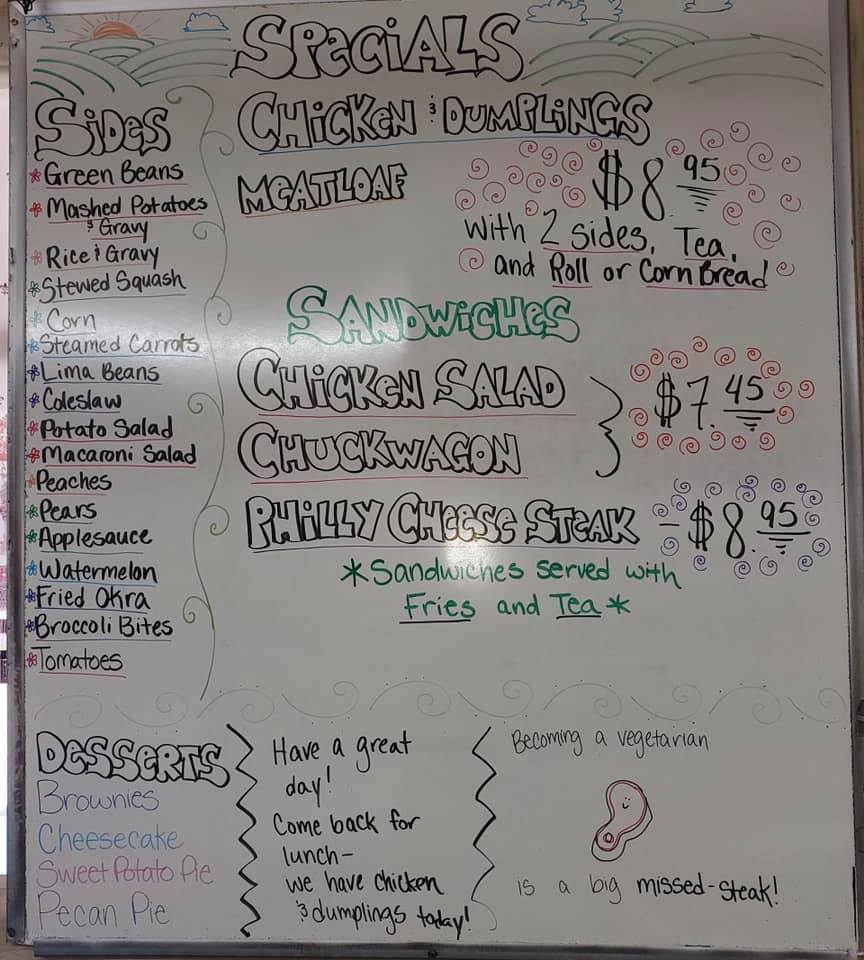 Specials
Sides
*Green Beans
*Mashed Potatoes
& Gravy
*Rice & Gravy
*Stewed Squash
*Corn
*Steamed Carrots
*Lima Beans
*Coleslaw
*Potato Salad
*Macaroni Salad
*Peaches
*Pears
*Applesauce
*Watermelon
*Fried Okra
*Broccoli Bites
*Tomatoes
Chicken & Dumplings
Meatloaf
$8.95
with 2 sides, Tea,
and Roll or Corn Bread
Sandwiches
Chicken Salad
Chuckwagon
$7.45
Philly Cheese Steak - $8.95
*Sandwiches served with
Fries and Tea*
Desserts
Brownies
Cheesecake
Sweet Potato Pie
Pecan Pie
Have a great
day!
Come back for
lunch-
we have chicken
& dumplings today!
Becoming a vegetarian
is a big missed-steak!